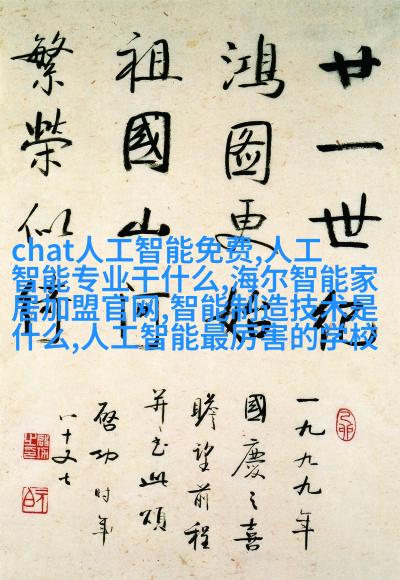 廿一世紀
鴻圖更
祖國山河
繁榮似
chat人工智能免费,人工
智能专业干什么,海尔智能家
居加盟官网,智能制造技术是
什么,人工智能最厉害的学校
一九九九年
國慶之喜
瞻望前程
并書此頌
啓功時年
八十又七